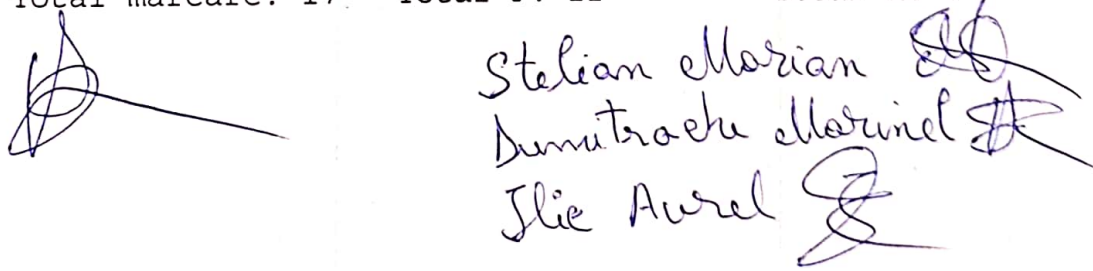 Stelian Marian
Dumitrache Marinel
Ilie Aurel